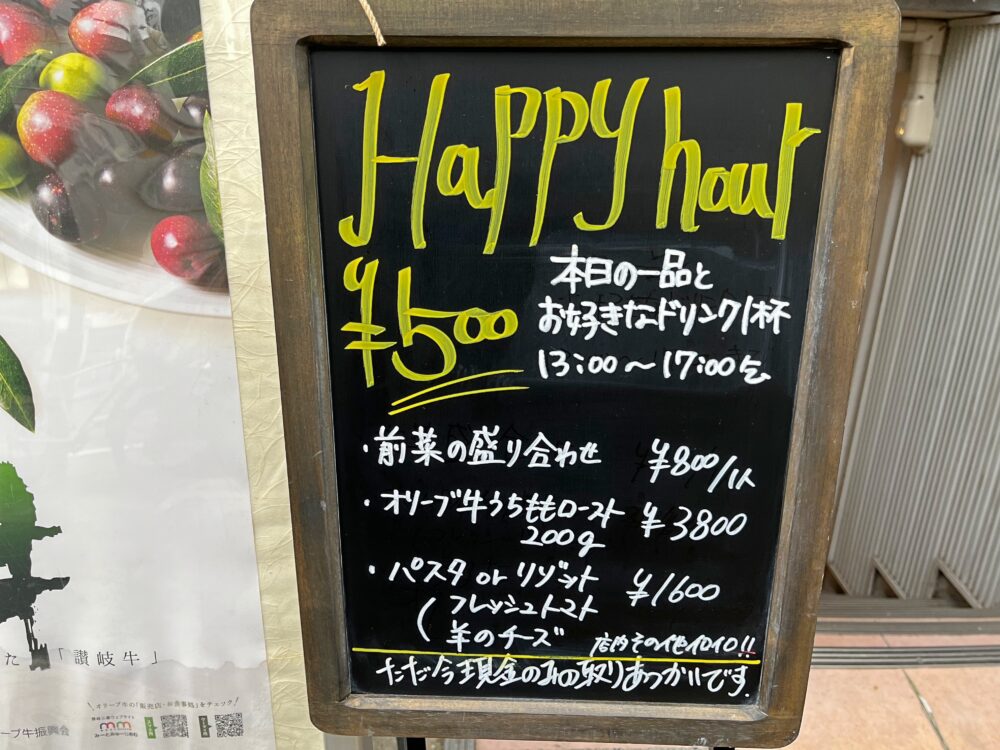 Happy hour
¥500
本日の一品と
お好きなドリンク1杯
13:00〜17:00迄
・前菜の盛り合わせ ¥800/1人
・オリーブ牛うちももロースト ¥3800
200g
・パスタ or リゾット ¥1600
(フレッシュトマト
羊のチーズ
店内その他イロイロ!!
ただ今現金のみの取りあつかいです.
た 「讃岐牛」
\オリーブ牛の「販売店・お食事処」をチェック/
ーブ牛振興会